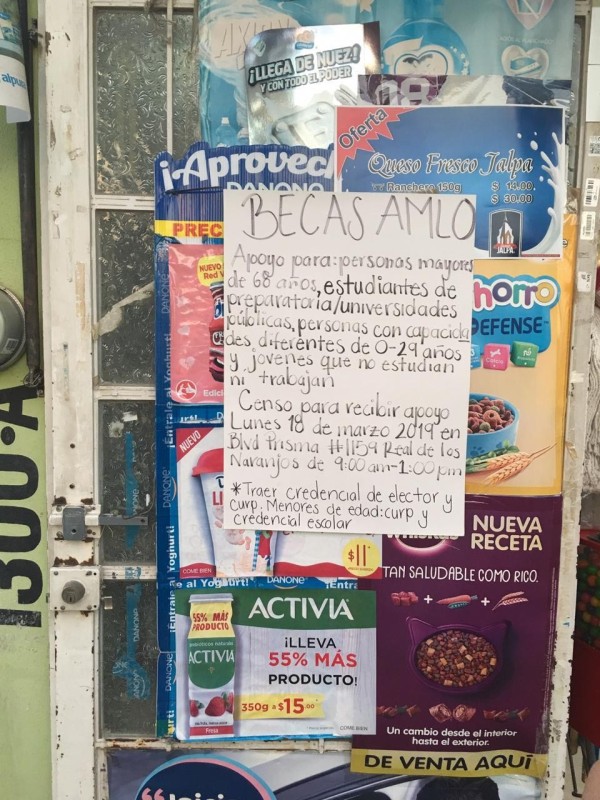 alpu
AXION
¡LLEGA DE NUEZ!
Y CON TODO EL PODER
Oferta
Queso Fresco Jalpa
Ranchero 150g $ 14.00.
$ 30.00
JALPA
¡Aprovech
DANONE
PREC
NUEVO
BECAS AMLO
Apoyo para: personas mayores
de 68 años, estudiantes de
preparatoria/universidades
públicas, personas con capacida
des diferentes de 0-29 años
y jovenes que no estudian
ni trabajan
Censo para recibir apoyo
Lunes 18 de marzo 2019 en
Blvd Prisma #1159 Real de los
Naranjos de 9:00am-1:00pm
*Traer credencial de elector y
curp. Menores de edad: curp y
credencial escolar
horro
DEFENSE
Calcio
Edici
¡Éntrale al Yoghurt!
DANONE
NUEVO
COME BIEN
$11
DANONE
300-A
ACTIVIA
55% MÁS
PRODUCTO
ACTIVIA
Fresa
¡LLEVA
55% MÁS
PRODUCTO!
350g a $15.00
COME BIEN
NUEVA
RECETA
TAN SALUDABLE COMO RICO.
Un cambio desde el interior
hasta el exterior.
DE VENTA AQUÍ